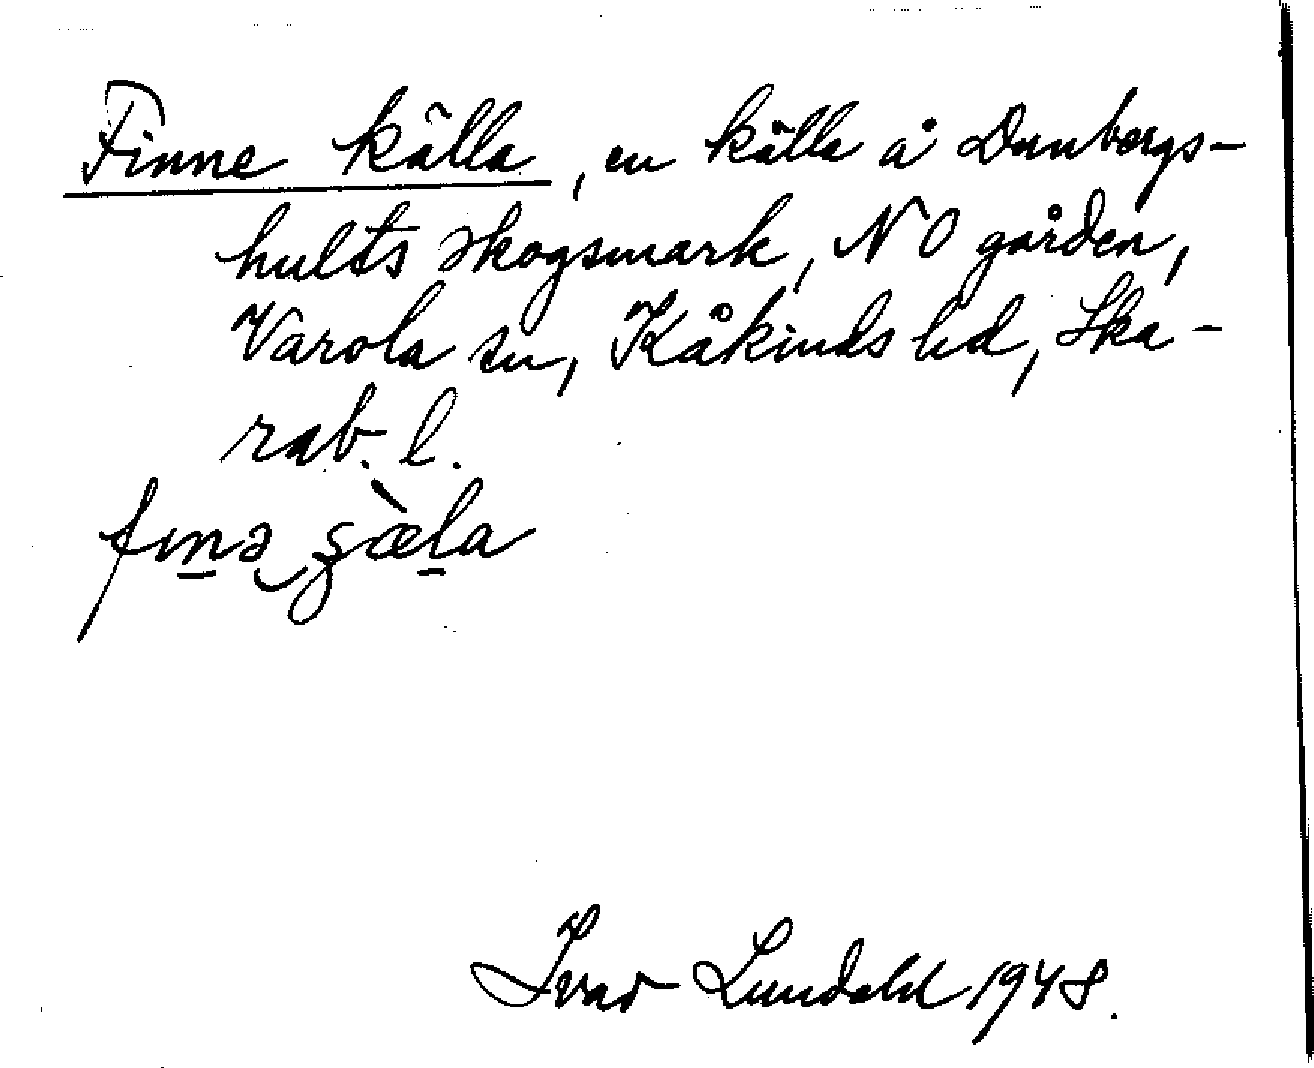 Finne källa, en källa å Dunbergs-
hults skogsmark, NO gården,
Varola sn, Kåkinds hd, Ska-
rab. l.
fɪnə ʂæ̀la
Ivar Lundahl 1948.